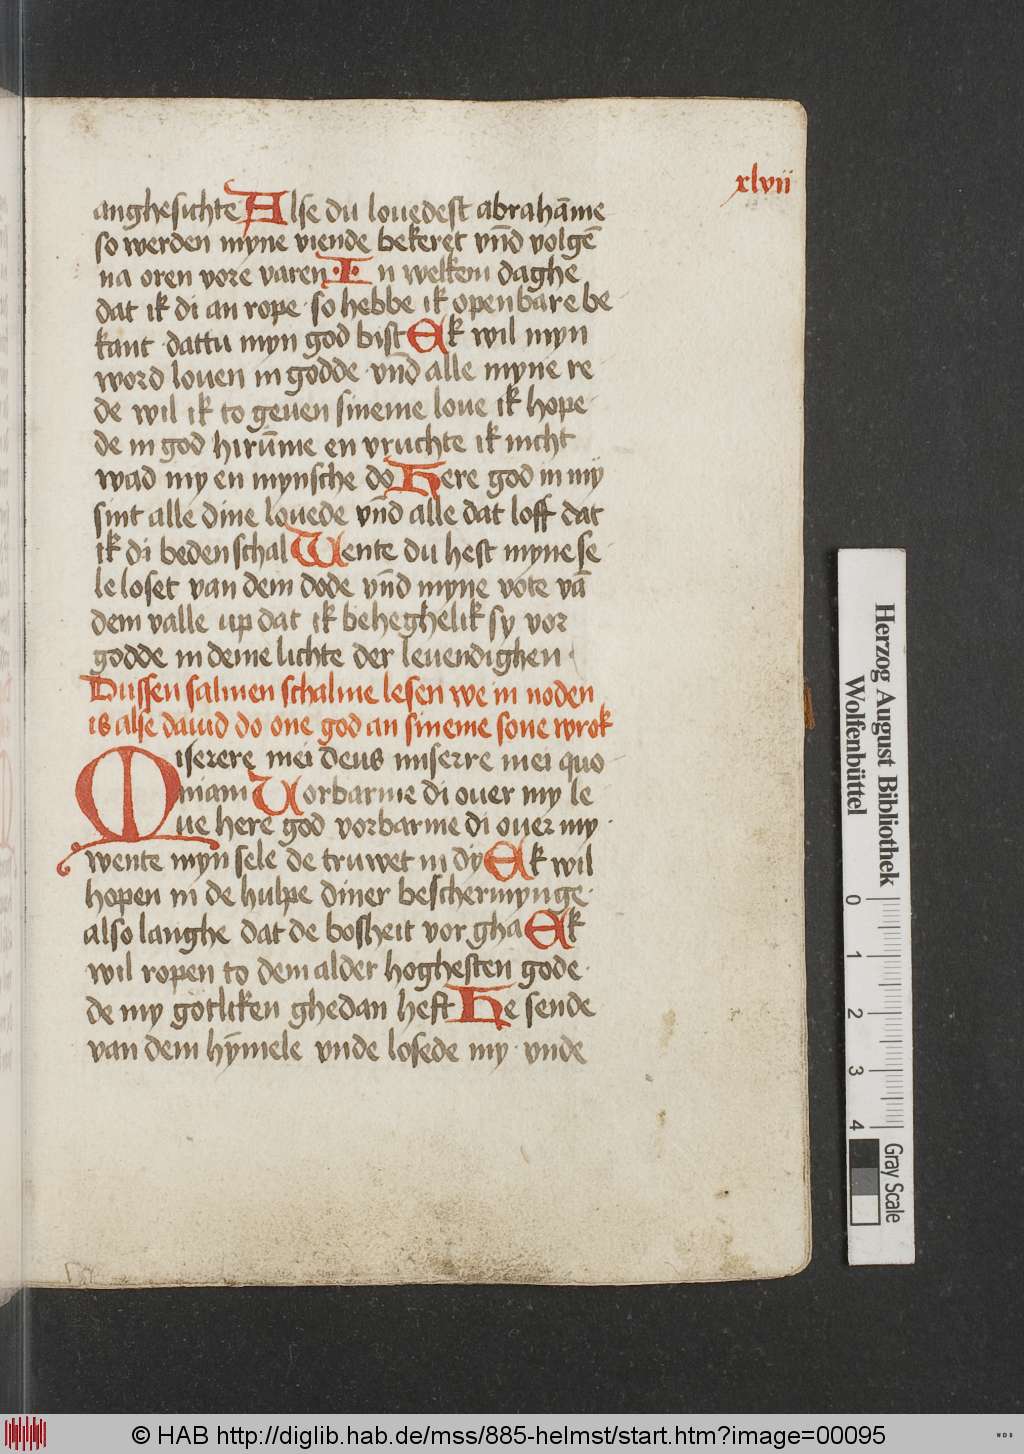 xlvii
anghesichte Alse du louedest abrahāme
so werden myne viende bekeret vn̄d volgē
na oren vore varen · I · n welkem daghe
dat ik di an rope · so hebbe ik openbare be
kant · dattu myn god bist Ek wil myn
word louen in godde · vn̄d alle myne re
de wil ik to geuen sineme loue ik hope
de in god hirūme en vruchte ik nicht
wad my en mynsche do Here god in mÿ
sint alle dine louede vn̄d alle dat loff dat
ik di beden schal Wente du hest myne se
le loset van dem dode vn̄d myne vote vā
dem valle up dat ik beheghelik sy vor
godde in deme lichte der leuendighen ·
Dussen salmen schalme lesen we in noden
is alse dauid do one god an sineme sone wrok
Miserere mei deus miserre mei quo
niam Vorbarme di ouer my le
ue here god vorbarme di ouer my ·
wente myn sele de truwet in dy Ek wil
hopen in de hulpe diner beschermynge ·
also langhe dat de bosheit vor gha Ek
wil ropen to dem alder hoghesten gode ·
de my gotliken ghedan heft He sende
van dem hȳmele vnde losede my · vnde
Herzog August Bibliothek
Wolfenbüttel
0 1 2 3 4
Gray Scale
© HAB http://diglib.hab.de/mss/885-helmst/start.htm?image=00095
WDB